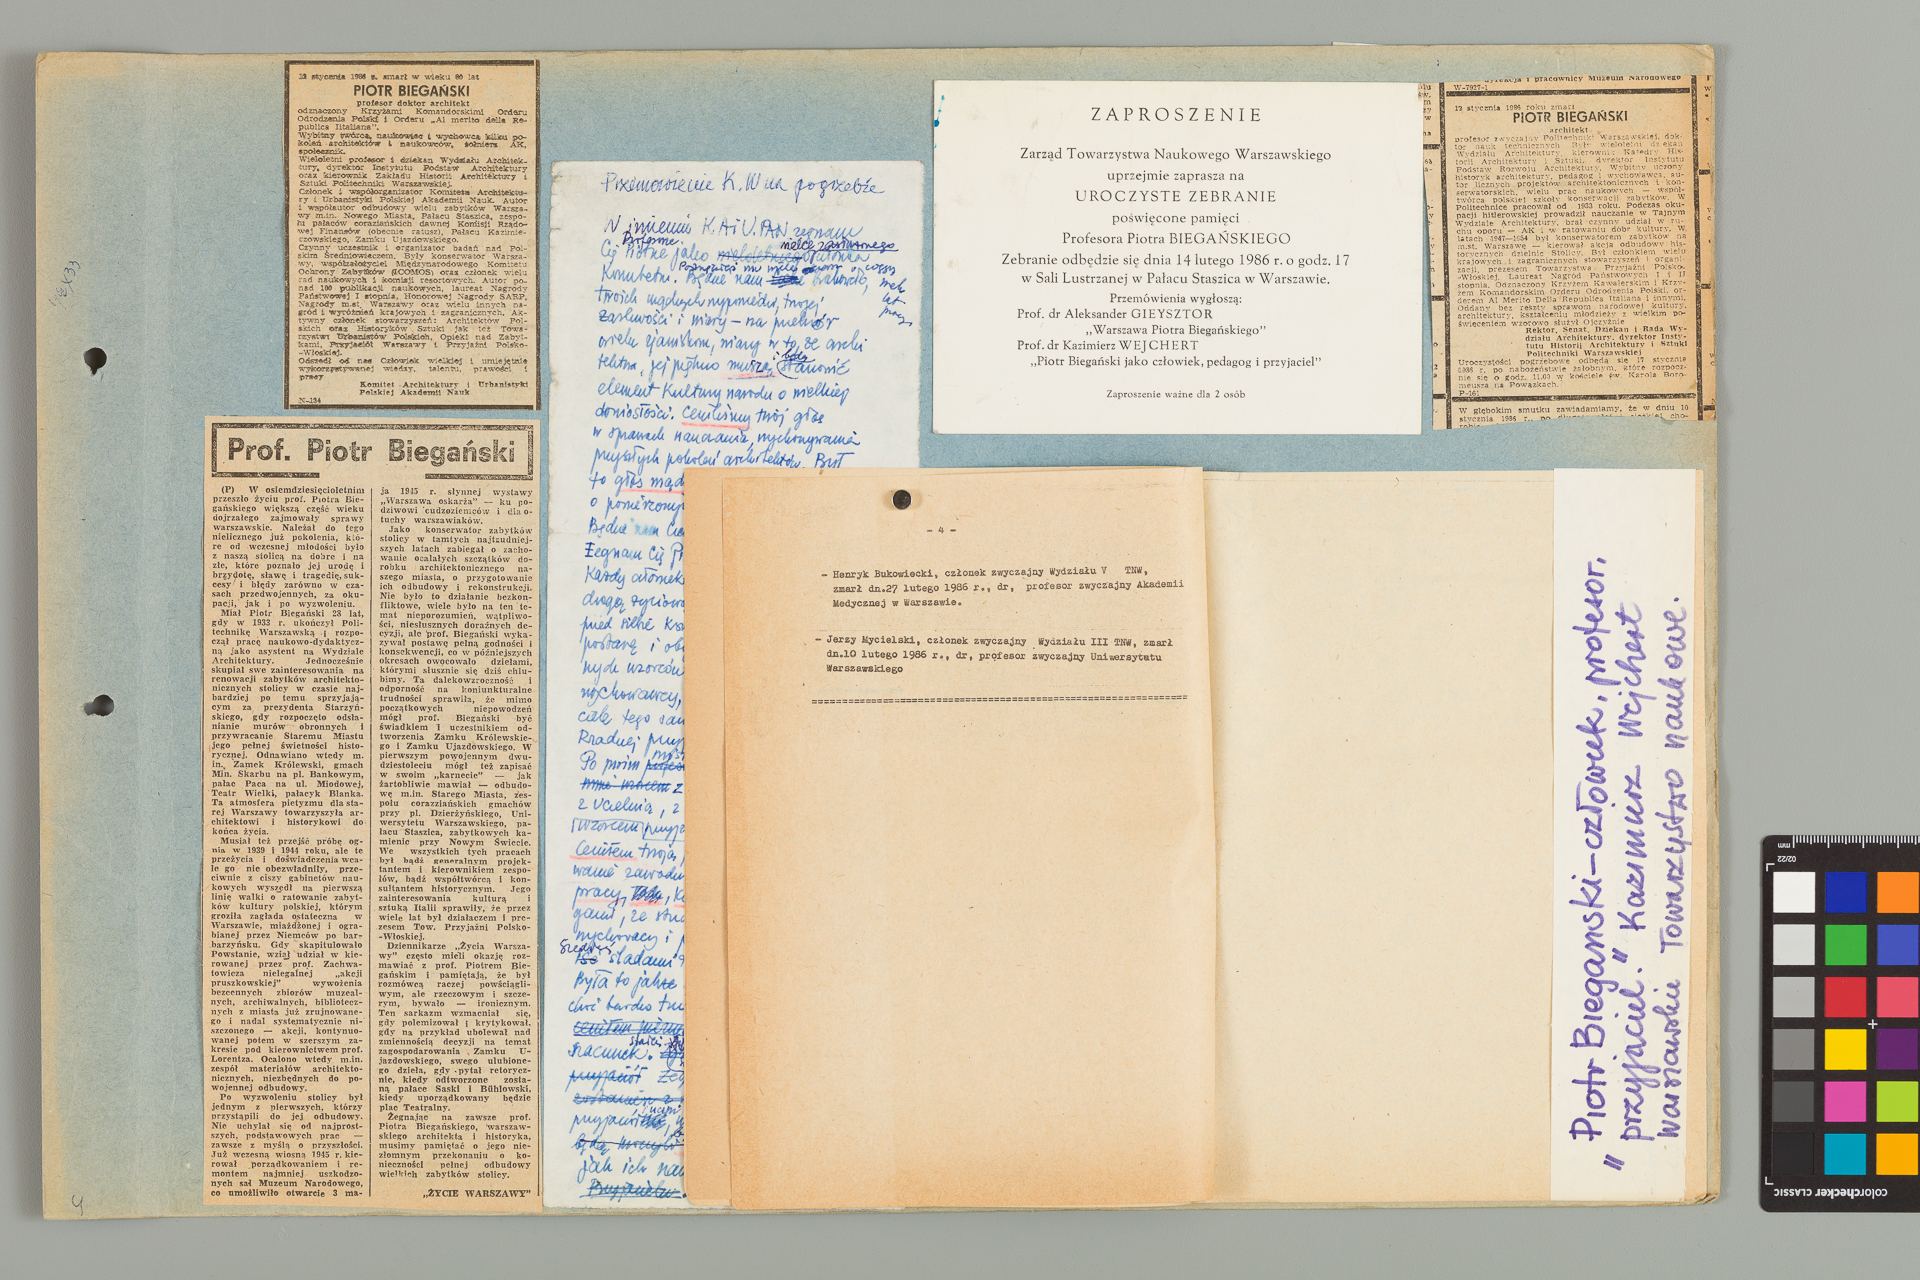 12 stycznia 1986 r. zmarł w wieku 80 lat
PIOTR BIEGAŃSKI
profesor doktor architekt
odznaczony Krzyżami Komandorskimi Orderu
Odrodzenia Polski i Orderu „Al merito della Re-
publica Iitaliana".
Wybitny twórca, naukowiec i wychowca kilku po-
koleń architektów i naukowców, żołnierz AK,
społecznik.
Wieloletni profesor i dziekan Wydziału Architek-
tury, dyrektor Instytutu Podstaw Architektury
oraz kierownik Zakładu Historii Architektury i
Sztuki Politechniki Warszawskiej.
Członek i współorganizator Komitetu Architektu-
ry i Urbanistyki Polskiej Akademii Nauk. Autor
i współautor odbudowy wielu zabytków Warsza-
wy m.in. Nowego Miasta, Pałacu Staszica, zespo-
łu pałaców corazziańskich dawnej Komisji Rządo-
wej Finansów (obecnie ratusz), Pałacu Kazimie-
rzowskiego, Zamku Ujazdowskiego.
Czynny uczestnik i organizator badań nad Pol-
skim Średniowieczem, Były konserwator Warsza-
wy, współzałożyciel Międzynarodowego Komitetu
Ochrony Zabytków (ICOMOS) oraz członek wielu
rad naukowych i komisji resortowych. Autor po-
nad 100 publikacji naukowych, laureat Nagrody
Państwowej I stopnia, Honorowej Nagrody SARP,
Nagrody m.st. Warszawy oraz wielu innych na-
gród i wyróżnień krajowych i zagranicznych, Ak-
tywny członek stowarzyszeń: Architektów Pol-
skich oraz Historyków Sztuki jak też Towa-
rzystw: Urbanistów Polskich, Opieki nad Zabyt-
kami, Przyjaciół Warszawy i Przyjaźni Polsko-
-Włoskiej.
Odszedł od nas Człowiek wielkiej i umiejętnie
wykorzystywanej wiedzy, talentu, prawości i
pracy
Komitet Architektury i Urbanistyki
Polskiej Akademii Nauk
N-134
Prof. Piotr Biegański
(P) W osiemdziesięcioletnim
przeszło życiu prof. Piotra Bie-
gańskiego większą część wieku
dojrzałego zajmowały sprawy
warszawskie. Należał do tego
nielicznego już pokolenia, któ-
re od wczesnej młodości było
z naszą stolicą na dobre i na
złe, które poznało jej urodę i
brzydotę, sławę i tragedię, suk-
cesy i błędy zarówno w cza-
sach przedwojennych, za oku-
pacji, jak i po wyzwoleniu.
Miał Piotr Biegański 28 lat,
gdy w 1933 r. ukończył Poli-
technikę Warszawską i rozpo-
czął pracę naukowo-dydaktycz-
ną jako asystent na Wydziale
Architektury. Jednocześnie
skupiał swe zainteresowania na
renowacji zabytków architekto-
nicznych stolicy w czasie naj-
bardziej po temu sprzyjają-
cym za prezydenta Starzyń-
skiego, gdy rozpoczęto odsła-
nianie murów obronnych i
przywracanie Staremu Miastu
jego pełnej świetności histo-
rycznej. Odnawiano wtedy m.
in. Zamek Królewski, gmach
Min. Skarbu na pl. Bankowym,
pałac Paca na ul. Miodowej,
Teatr Wielki, pałacyk Blanka.
Ta atmosfera pietyzmu dla sta-
rej Warszawy towarzyszyła ar-
chitektowi i historykowi do
końca życia.
Musiał też przejść próbę og-
nia w 1939 i 1944 roku, ale te
przeżycia i doświadczenia wca-
le go nie obezwładniły, prze-
ciwnie z ciszy gabinetów nau-
kowych wyszedł na pierwszą
linię walki o ratowanie zabyt-
ków kultury polskiej, którym
groziła zagłada ostateczna w
Warszawie, miażdżonej i ogra-
bianej przez Niemców po bar-
barzyńsku. Gdy skapitulowało
Powstanie, wziął udział w kie-
rowanej przez prof. Zachwa-
towicza nielegalnej „akcji
pruszkowskiej" wywożenia
bezcennych zbiorów muzeal-
nych, archiwalnych, bibliotecz-
nych z miasta już zrujnowane-
go i nadal systematycznie ni-
szczonego — akcji, kontynuo-
wanej potem w szerszym za-
kresie pod kierownictwem prof.
Lorentza. Ocalono wtedy m.in.
zespół materiałów architekto-
nicznych, niezbędnych do po-
wojennej odbudowy.
Po wyzwoleniu stolicy był
jednym z pierwszych, którzy
przystąpili do jej odbudowy.
Nie uchylał się od najprost-
szych, podstawowych prac —
zawsze z myślą o przyszłości.
Już wczesną wiosną 1945 r. kie-
rował porządkowaniem i re-
montem najmniej uszkodzo-
nych sal Muzeum Narodowego,
co umożliwiło otwarcie 3 ma-
ja 1945 r. słynnej wystawy
„Warszawa oskarża" — ku po-
dziwowi cudzoziemców i dla o-
tuchy warszawiaków.
Jako konserwator zabytków
stolicy w tamtych najtrudniej-
szych latach zabiegał o zacho-
wanie ocalałych szczątków do-
robku architektonicznego na-
szego miasta, o przygotowanie
ich odbudowy i rekonstrukcji.
Nie było to działanie bezkon-
fliktowe, wiele było na ten te-
mat nieporozumień, wątpliwo-
ści, niesłusznych doraźnych de-
cyzji, ale prof. Biegański wyka-
zywał postawę pełną godności i
konsekwencji, co w późniejszych
okresach owocowało dziełami,
którymi słusznie się dziś chlu-
bimy. Ta dalekowzroczność i
odporność na koniunkturalne
trudności sprawiła, że mimo
początkowych niepowodzeń
mógł prof. Biegański być
świadkiem i uczestnikiem od-
tworzenia Zamku Królewskie-
go i Zamku Ujazdowskiego. W
pierwszym powojennym dwu-
dziestoleciu mógł też zapisać
w swoim „karnecie" — jak
żartobliwie mawiał — odbudo-
wę m.in. Starego Miasta, zes-
połu corazziańskich gmachów
przy pl. Dzierżyńskiego, Uni-
wersytetu Warszawskiego, pa-
łacu Staszica, zabytkowych ka-
mienic przy Nowym Świecie.
We wszystkich tych pracach
był bądź generalnym projek-
tantem i kierownikiem zespo-
łów, bądź współtwórcą i kon-
sultantem historycznym. Jego
zainteresowania kulturą i
sztuką Italii sprawiły, że przez
wiele lat był działaczem i pre-
zesem Tow. Przyjaźni Polsko-
-Włoskiej.
Dziennikarze „Życia Warsza-
wy" często mieli okazję roz-
mawiać z prof. Piotrem Bie-
gańskim i pamiętają, że był
rozmówcą raczej powściągli-
wym, ale rzeczowym i szcze-
rym, bywało — ironicznym.
Ten sarkazm wzmacniał się,
gdy polemizował i krytykował,
gdy na przykład ubolewał nad
zmiennością decyzji na temat
zagospodarowania Zamku U-
jazdowskiego, swego ulubione-
go dzieła, gdy pytał retorycz-
nie, kiedy odtworzone zosta-
ną pałace Saski i Brühlowski,
kiedy uporządkowany będzie
plac Teatralny.
Żegnając na zawsze prof.
Piotra Biegańskiego, warszaw-
skiego architekta i historyka,
musimy pamiętać o jego nie-
złomnym przekonaniu o ko-
nieczności pełnej odbudowy
wielkich zabytków stolicy.
„ŻYCIE WARSZAWY"
Przemówienie K.W na pogrzebie
W imieniu K.A i U. PAN żegnam
Cię Piotrze jako członka
Komitetu. Będzie nam brakowało,
twoich mądrych wypowiedzi, twojej
żarliwości i wiary — na przekór
wielu zjawiskom, wiary w to, że archi
tektura, jej piękno muszą stanowić
element Kultury narodu o wielkiej
doniosłości. Ceniliśmy twój głos
w sprawach nauczania, wychowywania
przyszłych pokoleń architektów. Był
to głos
Będzie nam
Żegnam Cię
Każdy
drogą
przed
postawę i
wychowawcy,
Po moim
z uczelnią, z
wzorcem
Ceniłem twoją
pracy,
że
wychowawcy i
śladami
Była to
choć bardzo
szacunek.
jak ich
ZAPROSZENIE
Zarząd Towarzystwa Naukowego Warszawskiego
uprzejmie zaprasza na
UROCZYSTE ZEBRANIE
poświęcone pamięci
Profesora Piotra BIEGAŃSKIEGO
Zebranie odbędzie się dnia 14 lutego 1986 r. o godz. 17
w Sali Lustrzanej w Pałacu Staszica w Warszawie.
Przemówienia wygłoszą:
Prof. dr Aleksander GIEYSZTOR
„Warszawa Piotra Biegańskiego"
Prof. dr Kazimierz WEJCHERT
„Piotr Biegański jako człowiek, pedagog i przyjaciel"
Zaproszenie ważne dla 2 osób
i pracownicy Muzeum Narodowego
W-7927-1
12 stycznia 1986 roku zmarł
PIOTR BIEGAŃSKI
architekt
profesor zwyczajny Politechniki Warszawskiej, dok-
tor nauk technicznych. Były wieloletni dziekan
Wydziału Architektury, kierownik Katedry His-
torii Architektury i Sztuki, dyrektor Instytutu
Podstaw Rozwoju Architektury, Wybitny uczony,
historyk architektury, pedagog i wychowawca, au-
tor licznych projektów architektonicznych i kon-
serwatorskich, wielu prac naukowych — współ-
twórca polskiej szkoły konserwacji zabytków. W
Politechnice pracował od 1933 roku. Podczas oku-
pacji hitlerowskiej prowadził nauczanie w Tajnym
Wydziale Architektury, brał czynny udział w ru-
chu oporu — AK i w ratowaniu dóbr kultury. W
latach 1947—1954 był konserwatorem zabytków na
m.st. Warszawę — kierował akcją odbudowy his-
torycznych dzielnic Stolicy. Był członkiem wielu
krajowych i zagranicznych stowarzyszeń i organi-
zacji, prezesem Towarzystwa Przyjaźni Polsko-
-Włoskiej. Laureat Nagród Państwowych I i II
stopnia. Odznaczony Krzyżem Kawalerskim i Krzy-
żem Komandorskim Orderu Odrodzenia Polski, or-
derem Al Merito Della Republica Italiana i innymi.
Oddany bez reszty sprawom narodowej kultury,
architektury, kształceniu młodzieży z wielkim po-
święceniem wzorowo służył Ojczyźnie
Rektor, Senat, Dziekan i Rada Wy-
działu Architektury, dyrektor Insty-
tutu Historii Architektury i Sztuki
Politechniki Warszawskiej
Uroczystości pogrzebowe odbędą się 17 stycznia
1986 r. po nabożeństwie żałobnym, które rozpocz-
nie się o godz. 11.00 w kościele św. Karola Boro-
meusza na Powązkach.
P-161
W głębokim smutku zawiadamiamy, że w dniu 10
- 4 -
- Henryk Bukowiecki, członek zwyczajny Wydziału V TNW,
zmarł dn.27 lutego 1986 r., dr, profesor zwyczajny Akademii
Medycznej w Warszawie.
- Jerzy Mycielski, członek zwyczajny Wydziału III TNW, zmarł
dn.10 lutego 1986 r., dr, profesor zwyczajny Uniwersytutu
Warszawskiego
"Piotr Biegański - człowiek, profesor,
przyjaciel." Kazimierz Wejchert
Warszawskie Towarzystwo naukowe.
mm
02/22
colorchecker CLASSIC